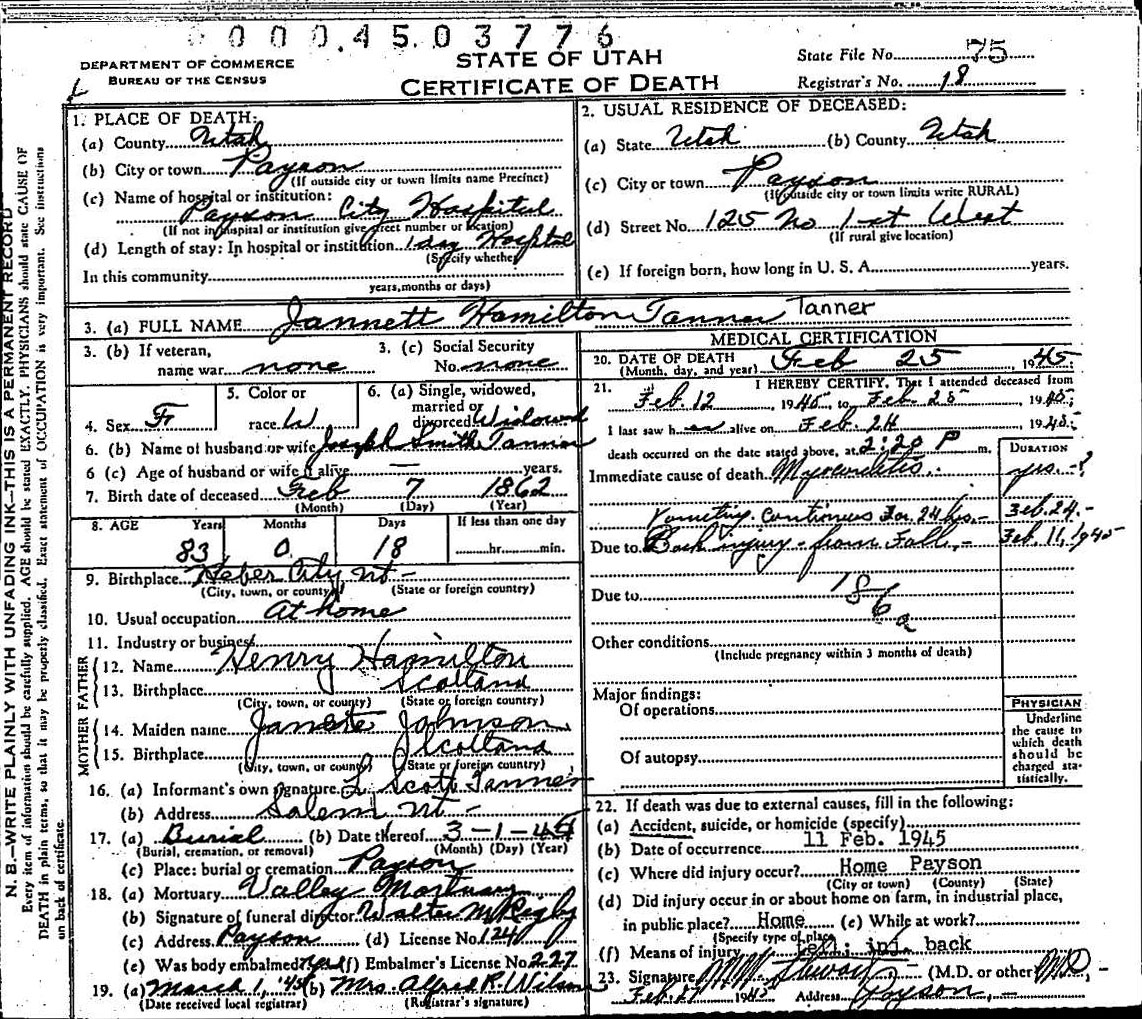 0000.4503776
DEPARTMENT OF COMMERCE
BUREAU OF THE CENSUS
STATE OF UTAH
CERTIFICATE OF DEATH
State File No. 75
Registrar's No. 18
N. B.—WRITE PLAINLY WITH UNFADING INK—THIS IS A PERMANENT RECORD
Every item of information should be carefully supplied. AGE should be stated EXACTLY. PHYSICIANS should state CAUSE OF
DEATH in plain terms, so that it may be properly classified. Exact statement of OCCUPATION is very important. See instructions
on back of certificate.
1. PLACE OF DEATH:
(a) County Utah
(b) City or town Payson
(If outside city or town limits name Precinct)
(c) Name of hospital or institution:
Payson City Hospital
(If not in hospital or institution give street number or location)
(d) Length of stay: In hospital or institution 1 day Hospital
(Specify whether
In this community
years, months or days)
2. USUAL RESIDENCE OF DECEASED:
(a) State Utah (b) County Utah
(c) City or town Payson
(If outside city or town limits write RURAL)
(d) Street No. 125 No 1st West
(If rural give location)
(e) If foreign born, how long in U. S. A. years.
3. (a) FULL NAME Jannett Hamilton Tanner Tanner
3. (b) If veteran, 3. (c) Social Security
name war none No. none
4. Sex F 5. Color or race W 6. (a) Single, widowed, married or divorced Widowed
6. (b) Name of husband or wife Joseph Smith Tanner
6 (c) Age of husband or wife if alive — years.
7. Birth date of deceased Feb 7 1862
(Month) (Day) (Year)
8. AGE Years Months Days If less than one day
83 0 18 hr. min.
9. Birthplace Heber City Ut -
(City, town, or county) (State or foreign country)
10. Usual occupation At home
11. Industry or business
FATHER
12. Name Henry Hamilton
13. Birthplace Scotland
(City, town, or county) (State or foreign country)
MOTHER
14. Maiden name Janete Johnson
15. Birthplace Scotland
(City, town, or county) (State or foreign country)
16. (a) Informant's own signature L. Scott Tanner
(b) Address Salem Ut -
17. (a) Burial (b) Date thereof 3-1-45
(Burial, cremation, or removal) (Month) (Day) (Year)
(c) Place: burial or cremation Payson
18. (a) Mortuary Valley Mortuary
(b) Signature of funeral director Walter M Rigby
(c) Address Payson (d) License No. 124
(e) Was body embalmed? yes (f) Embalmer's License No. 227
19. (a) March 1, '45 (b) Mrs. Alfred R. Wilson
(Date received local registrar) (Registrar's signature)
MEDICAL CERTIFICATION
20. DATE OF DEATH Feb 25 1945
(Month, day, and year)
21. I HEREBY CERTIFY, That I attended deceased from
Feb. 12, 1945, to Feb. 25, 1945;
I last saw her alive on Feb 24 1945;
death occurred on the date stated above, at 2:20 P m.
DURATION
Immediate cause of death Myocarditis. yrs. -?
Vomiting continuous for 24 hrs. - Feb. 24. -
Due to Back injury - from Fall, - Feb. 11, 1945
Due to 186a
Other conditions
(Include pregnancy within 3 months of death)
Major findings:
Of operations
Of autopsy
PHYSICIAN
Underline
the cause to
which death
should be
charged sta-
tistically.
22. If death was due to external causes, fill in the following:
(a) Accident, suicide, or homicide (specify)
(b) Date of occurrence 11 Feb. 1945
(c) Where did injury occur? Home Payson
(City or town) (County) (State)
(d) Did injury occur in or about home on farm, in industrial place,
in public place? Home (e) While at work?
(Specify type of place
(f) Means of injury fell; inj. back
23. Signature M. Stewart - (M.D. or other) MD -
Feb. 27 1945 Address Payson, -